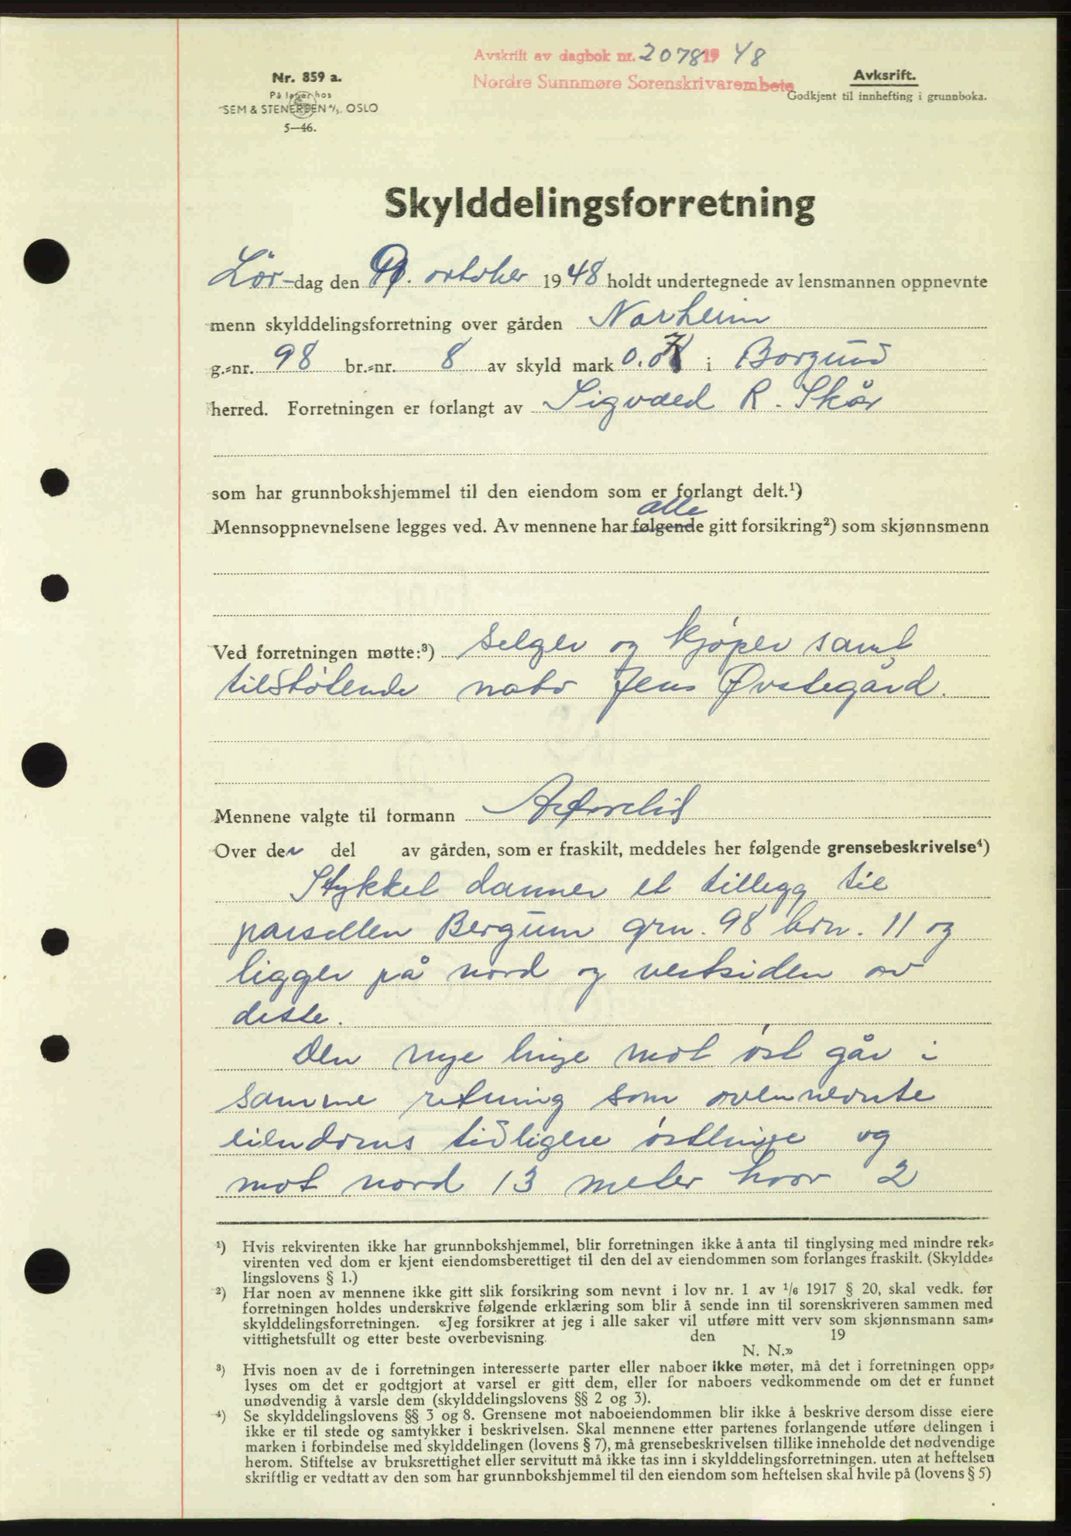 Avskrift av dagbok nr. 2078 19 48
Nordre Sunnmøre Sorenskrivarembete
Nr. 859 a.
På lager hos
SEM & STENERSEN A/S. OSLO
5—46.
Avksrift.
Godkjent til innhefting i grunnboka.
Skylddelingsforretning
Lör-dag den 9. oktober 1948 holdt undertegnede av lensmannen oppnevnte
menn skylddelingsforretning over gården Norheim
g.-nr. 98 br.-nr. 8 av skyld mark 0.07 i Borgund
herred. Forretningen er forlangt av Sigvald R. Skår
som har grunnbokshjemmel til den eiendom som er forlangt delt.¹)
alle
Mennsoppnevnelsene legges ved. Av mennene har følgende gitt forsikring²) som skjønnsmenn
Ved forretningen møtte:³) selger og kjøper samt
tilstøtende nabo Jens Øvstegård.
Mennene valgte til formann
Over den del av gården, som er fraskilt, meddeles her følgende grensebeskrivelse⁴)
Stykket danner et tillegg til
parsellen Bergum grn. 98 brn. 11 og
ligger på nord og vestsiden av
dette.
Den nye linje mot øst går i
samme retning som ovennevnte
eiendoms tidligere østlinje og
mot nord 13 meter hvor 2
¹) Hvis rekvirenten ikke har grunnbokshjemmel, blir forretningen ikke å anta til tinglysing med mindre rek-
virenten ved dom er kjent eiendomsberettiget til den del av eiendommen som forlanges fraskilt. (Skyldde-
lingslovens § 1.)
²) Har noen av mennene ikke gitt slik forsikring som nevnt i lov nr. 1 av 1/6 1917 § 20, skal vedk. før
forretningen holdes underskrive følgende erklæring som blir å sende inn til sorenskriveren sammen med
skylddelingsforretningen. «Jeg forsikrer at jeg i alle saker vil utføre mitt verv som skjønnsmann sam-
vittighetsfullt og etter beste overbevisning. den 19
N. N.»
³) Hvis noen av de i forretningen interesserte parter eller naboer ikke møter, må det i forretningen opp-
lyses om det er godtgjort at varsel er gitt dem, eller for naboers vedkommende om det er funnet
unødvendig å varsle dem (skylddelingslovens §§ 2 og 3).
⁴) Se skylddelingslovens §§ 3 og 8. Grensene mot naboeiendommen blir ikke å beskrive dersom disse eiere
ikke er til stede og samtykker i beskrivelsen. Skal mennene etter partenes forlangende utføre delingen i
marken i forbindelse med skylddelingen (lovens § 7), må grensebeskrivelsen tillike inneholde det nødvendige
herom. Stiftelse av bruksrettighet eller servitutt må ikke tas inn i skylddelingsforretningen. uten at heftelsen
skriftlig er vedtatt av den som har grunnbokshjemmel til den eiendom som heftelsen skal hvile på (lovens § 5)